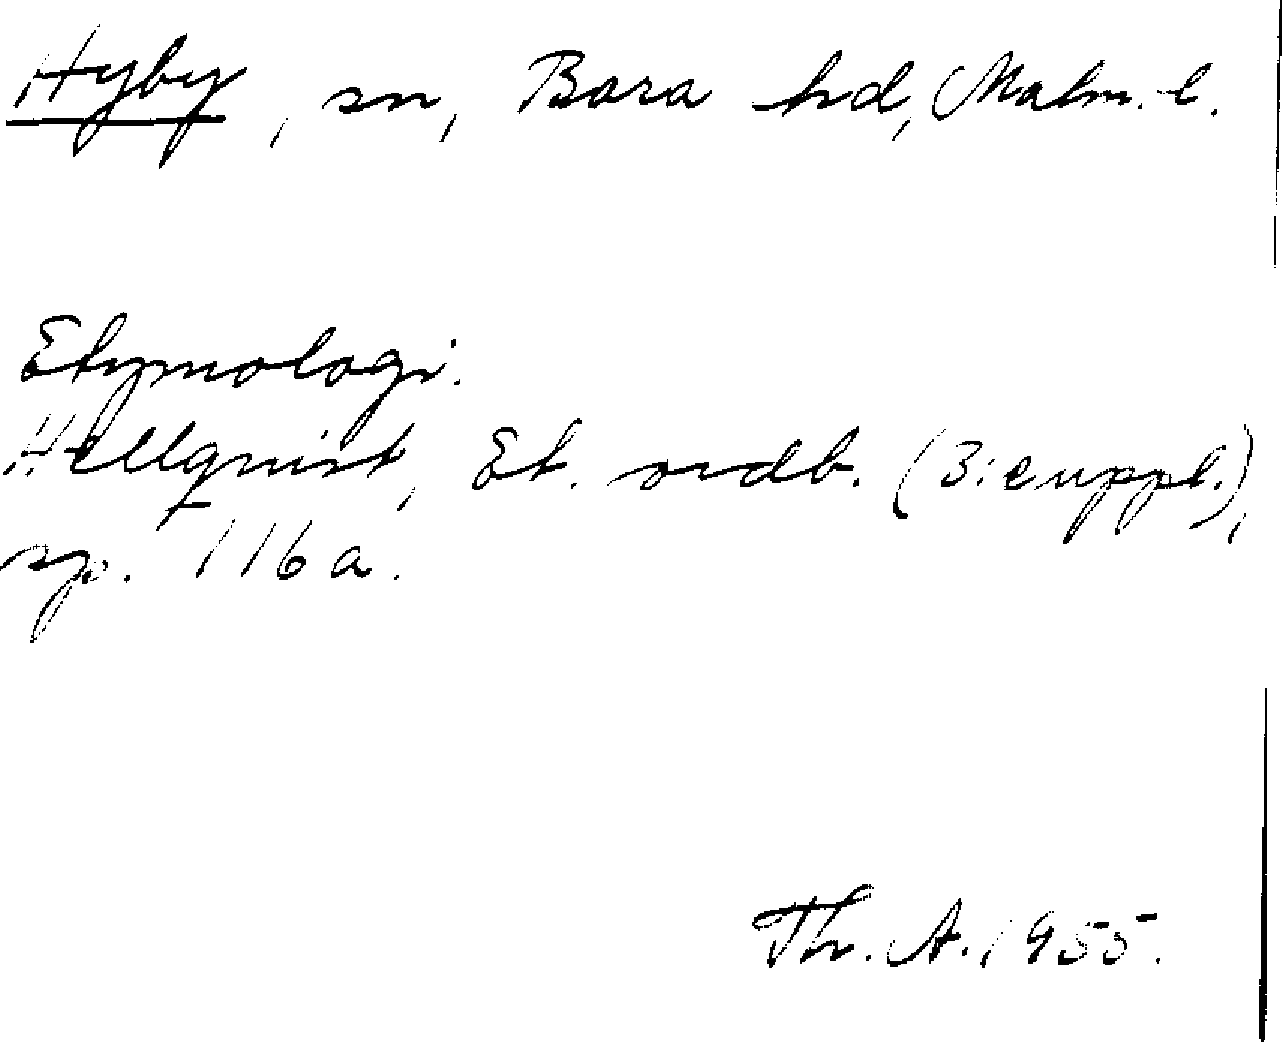 Hyby, sn, Bara hd, Malm. l.
Etymologi.
Hellquist, Et. ordb. (3:e uppl.),
sp. 116a.
Th. A. 1955.